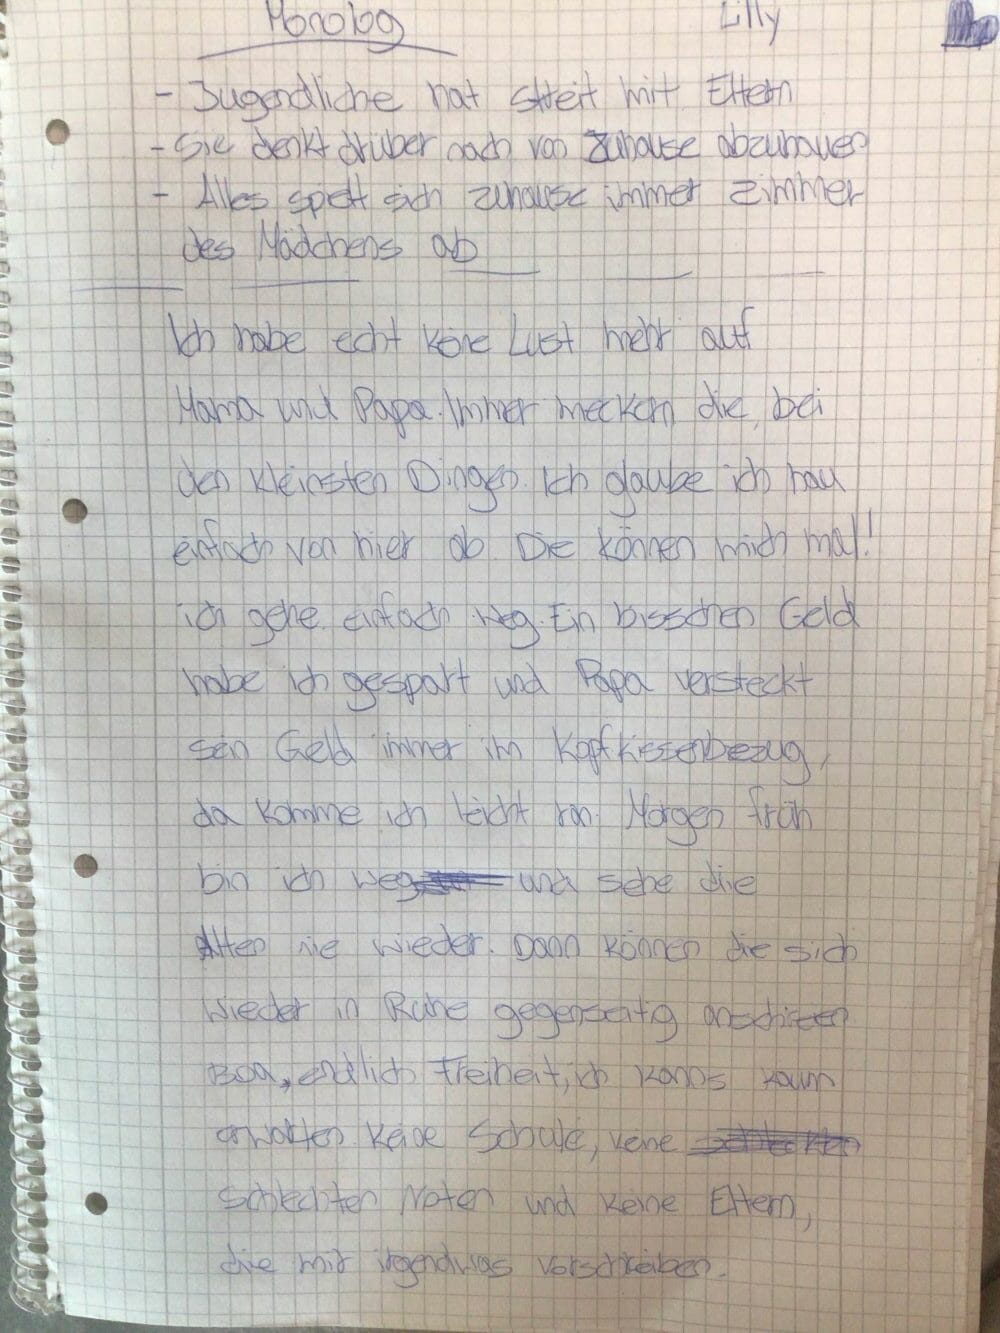 Monolog Lilly
- Jugendliche hat Streit mit Eltern
- Sie denkt drüber nach von Zuhause abzuhauen
- Alles spielt sich zuhause immer zimmer
des Mädchens ab
Ich habe echt keine Lust mehr auf
Mama und Papa. Immer meckern die, bei
den kleinsten Dingen. Ich glaube ich hau
einfach von hier ab. Die können mich mal!
ich gehe einfach weg. Ein bisschen Geld
habe ich gespart und Papa versteckt
sein Geld immer im Kopfkissenbezug,
da komme ich leicht ran. Morgen früh
bin ich weg und sehe die
Alten nie wieder. Dann können die sich
wieder in Ruhe gegenseitig
Boa, endlich Freiheit, ich kanns kaum
erwarten. Keine Schule, keine
schlechten Noten und keine Eltern,
die mir irgendwas vorschreiben.